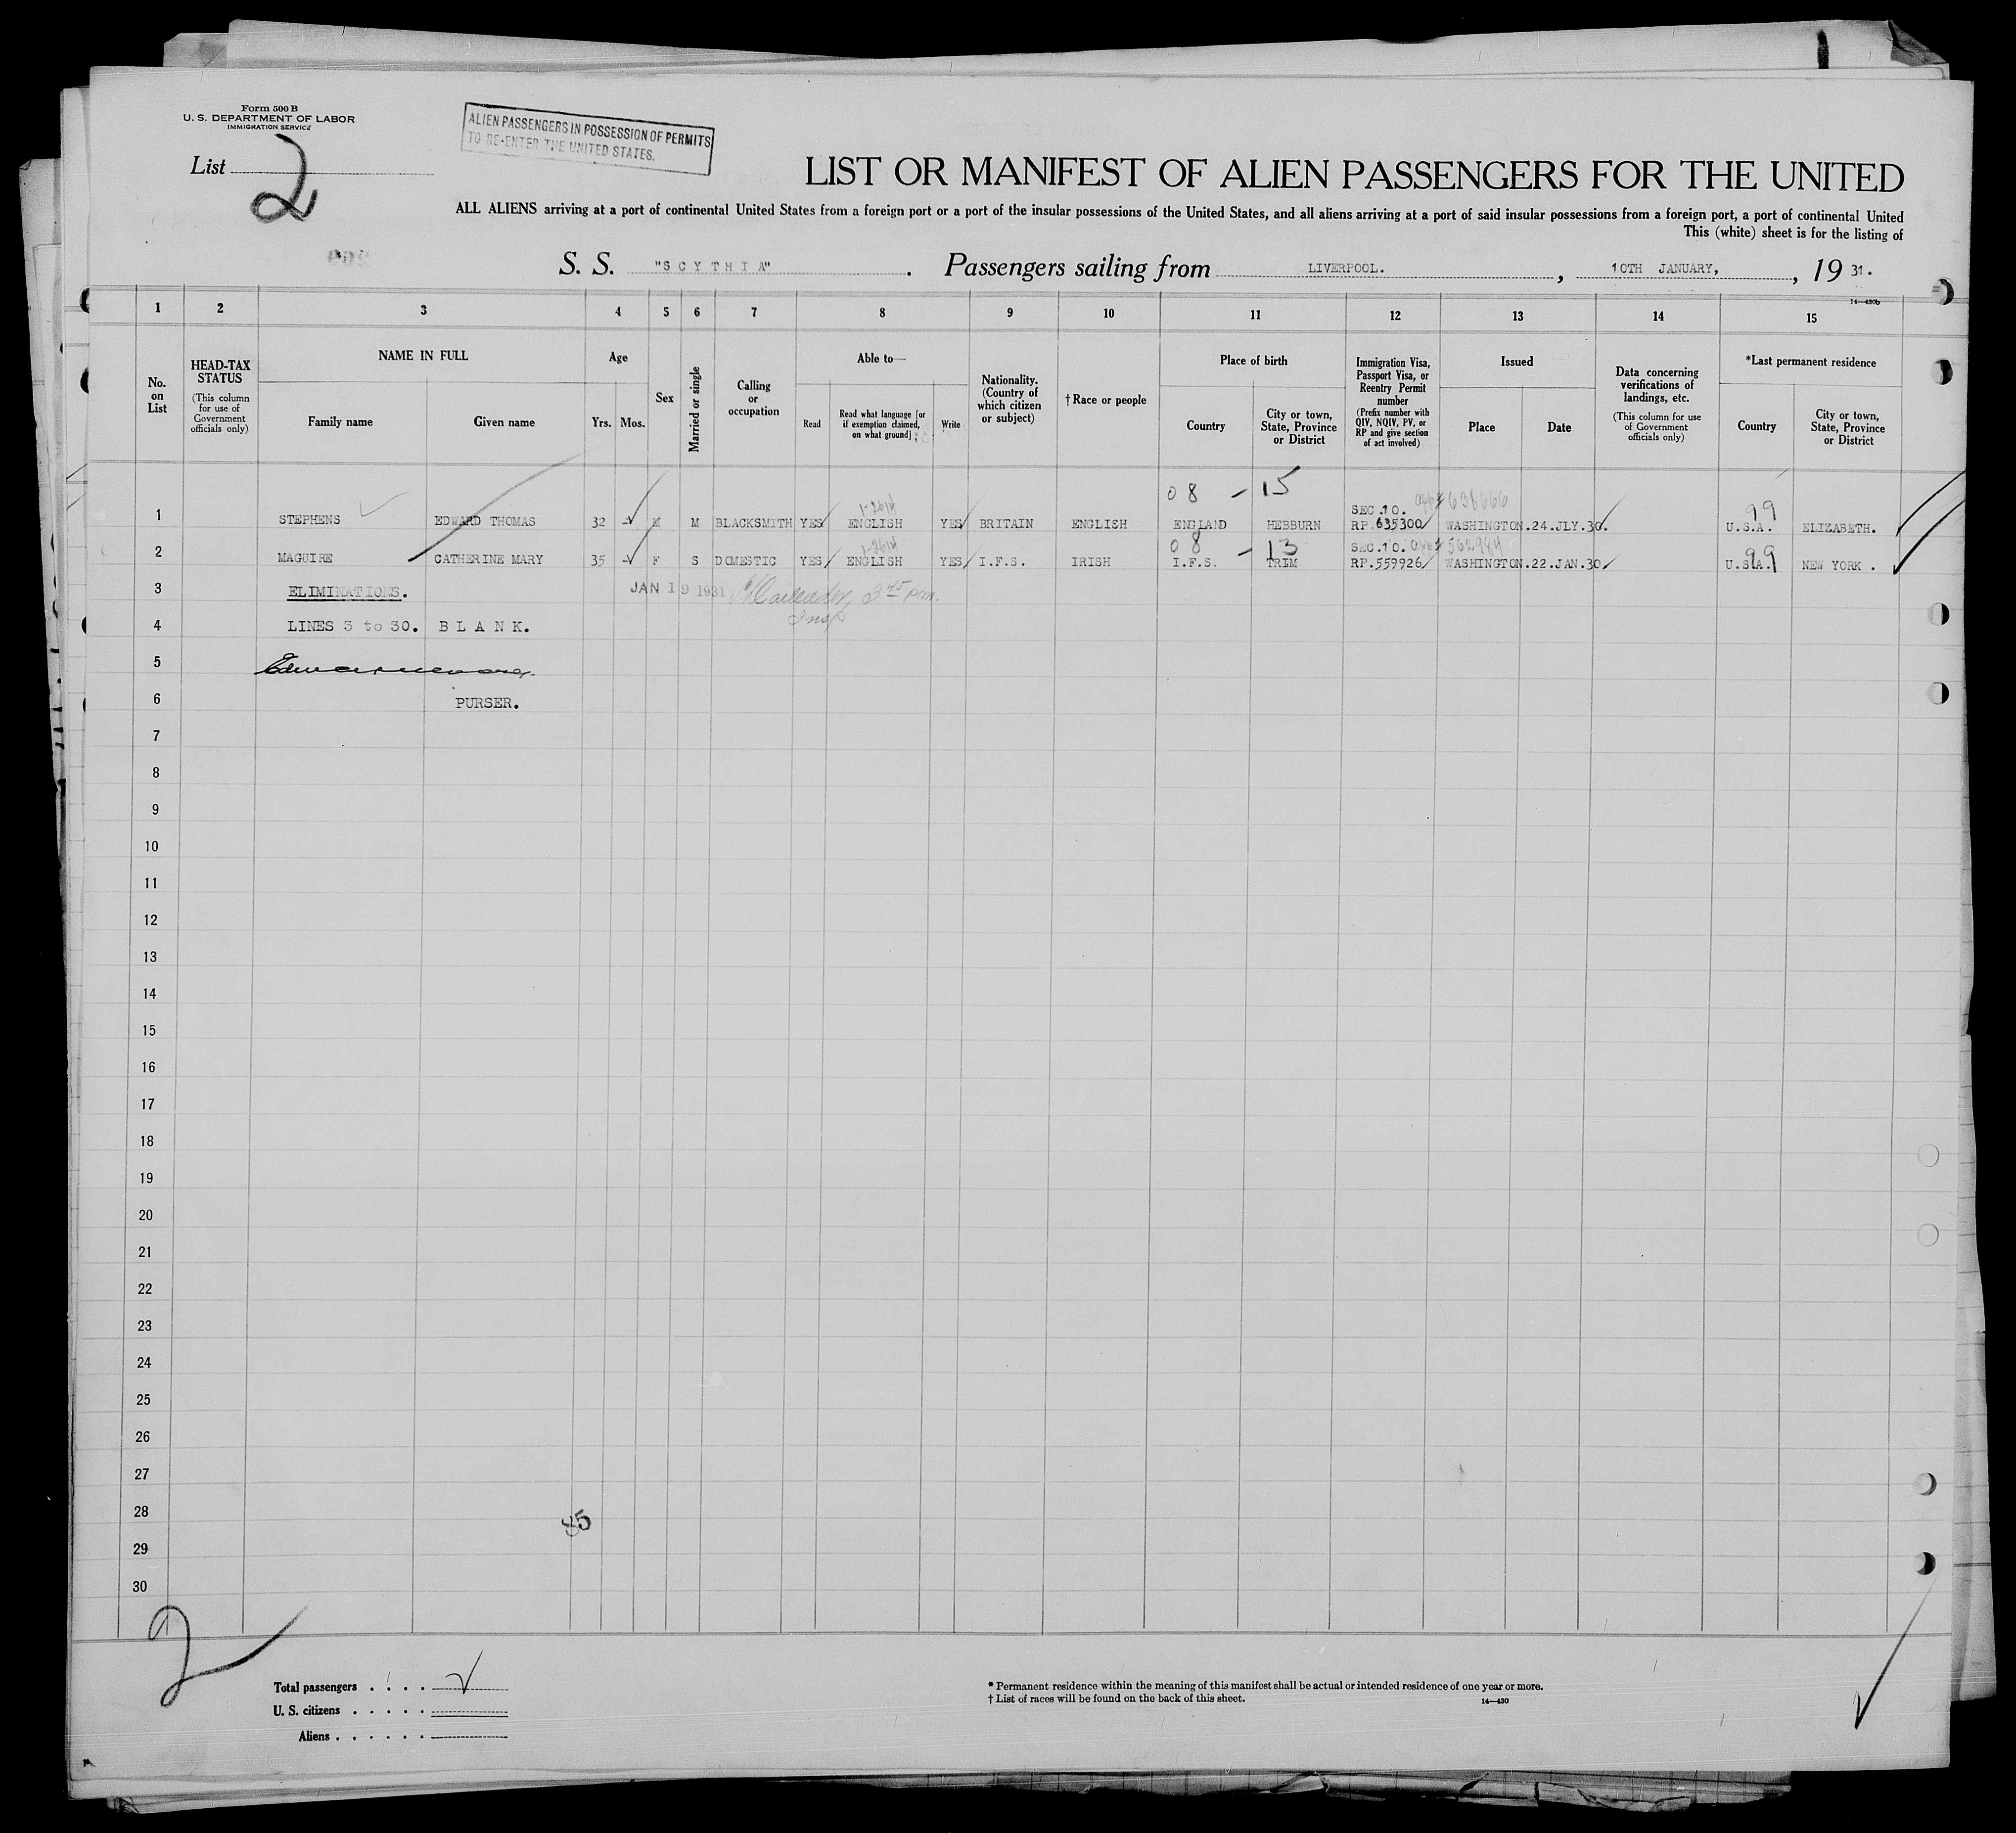 Form 500 B
U. S. DEPARTMENT OF LABOR
IMMIGRATION SERVICE
List 2
ALIEN PASSENGERS IN POSSESSION OF PERMITS
TO RE-ENTER THE UNITED STATES.
LIST OR MANIFEST OF ALIEN PASSENGERS FOR THE UNITED
ALL ALIENS arriving at a port of continental United States from a foreign port or a port of the insular possessions of the United States, and all aliens arriving at a port of said insular possessions from a foreign port, a port of continental United
This (white) sheet is for the listing of
S. S. "SCYTHIA". Passengers sailing from LIVERPOOL., 10TH JANUARY, 19 31.
14—430b
1 2 3 4 5 6 7 8 9 10 11 12 13 14 15
No. on List
HEAD-TAX STATUS (This column for use of Government officials only)
NAME IN FULL
Family name
Given name
Age
Yrs. Mos.
Sex
Married or single
Calling or occupation
Able to—
Read
Read what language [or if exemption claimed, on what ground]
Write
Nationality. (Country of which citizen or subject)
†Race or people
Place of birth
Country
City or town, State, Province or District
Immigration Visa, Passport Visa, or Reentry Permit number (Prefix number with QIV, NQIV, PV, or RP and give section of act involved)
Issued
Place
Date
Data concerning verifications of landings, etc. (This column for use of Government officials only)
*Last permanent residence
Country
City or town, State, Province or District
08 - 15
1 STEPHENS EDWARD THOMAS 32 - M M BLACKSMITH YES ENGLISH YES BRITAIN ENGLISH ENGLAND HEBBURN SEC.10. RP.635300 WASHINGTON.24.JLY.30. U.S.A. 99 ELIZABETH.
08 - 13
2 MAGUIRE CATHERINE MARY 35 - F S DOMESTIC YES ENGLISH YES I.F.S. IRISH I.F.S. TRIM SEC.10. RP.559926 WASHINGTON.22.JAN.30 U.S.A. 99 NEW YORK.
3 ELIMINATIONS. JAN 19 1931 3 45 pm.
4 LINES 3 to 30. BLANK. Insp
5
6 PURSER.
7
8
9
10
11
12
13
14
15
16
17
18
19
20
21
22
23
24
25
26
27
28
29
30
2
Total passengers . . . .
U. S. citizens . . . . .
Aliens . . . . . .
* Permanent residence within the meaning of this manifest shall be actual or intended residence of one year or more.
† List of races will be found on the back of this sheet.
14—430